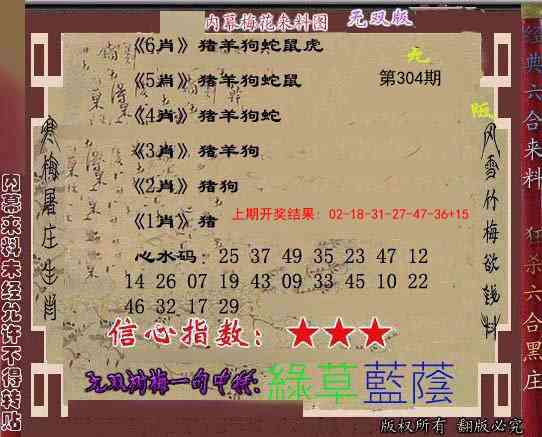 内幕梅花来料图 无双版
《6肖》猪羊狗蛇鼠虎
《5肖》猪羊狗蛇鼠
第304期
《4肖》猪羊狗蛇
《3肖》猪羊狗
《2肖》猪狗
《1肖》猪
上期开奖结果：02-18-31-27-47-36+15
心水码：25 37 49 35 23 47 12
14 26 07 19 43 09 33 45 10 22
46 32 17 29
信心指数：★★★
一句中特:綠草藍蔭
版权所有 翻版必究
寒梅屠庄生肖
风雪竹梅欲钱料
内幕来料未经允许不得转贴
经典六合来料
狂杀六合黑庄